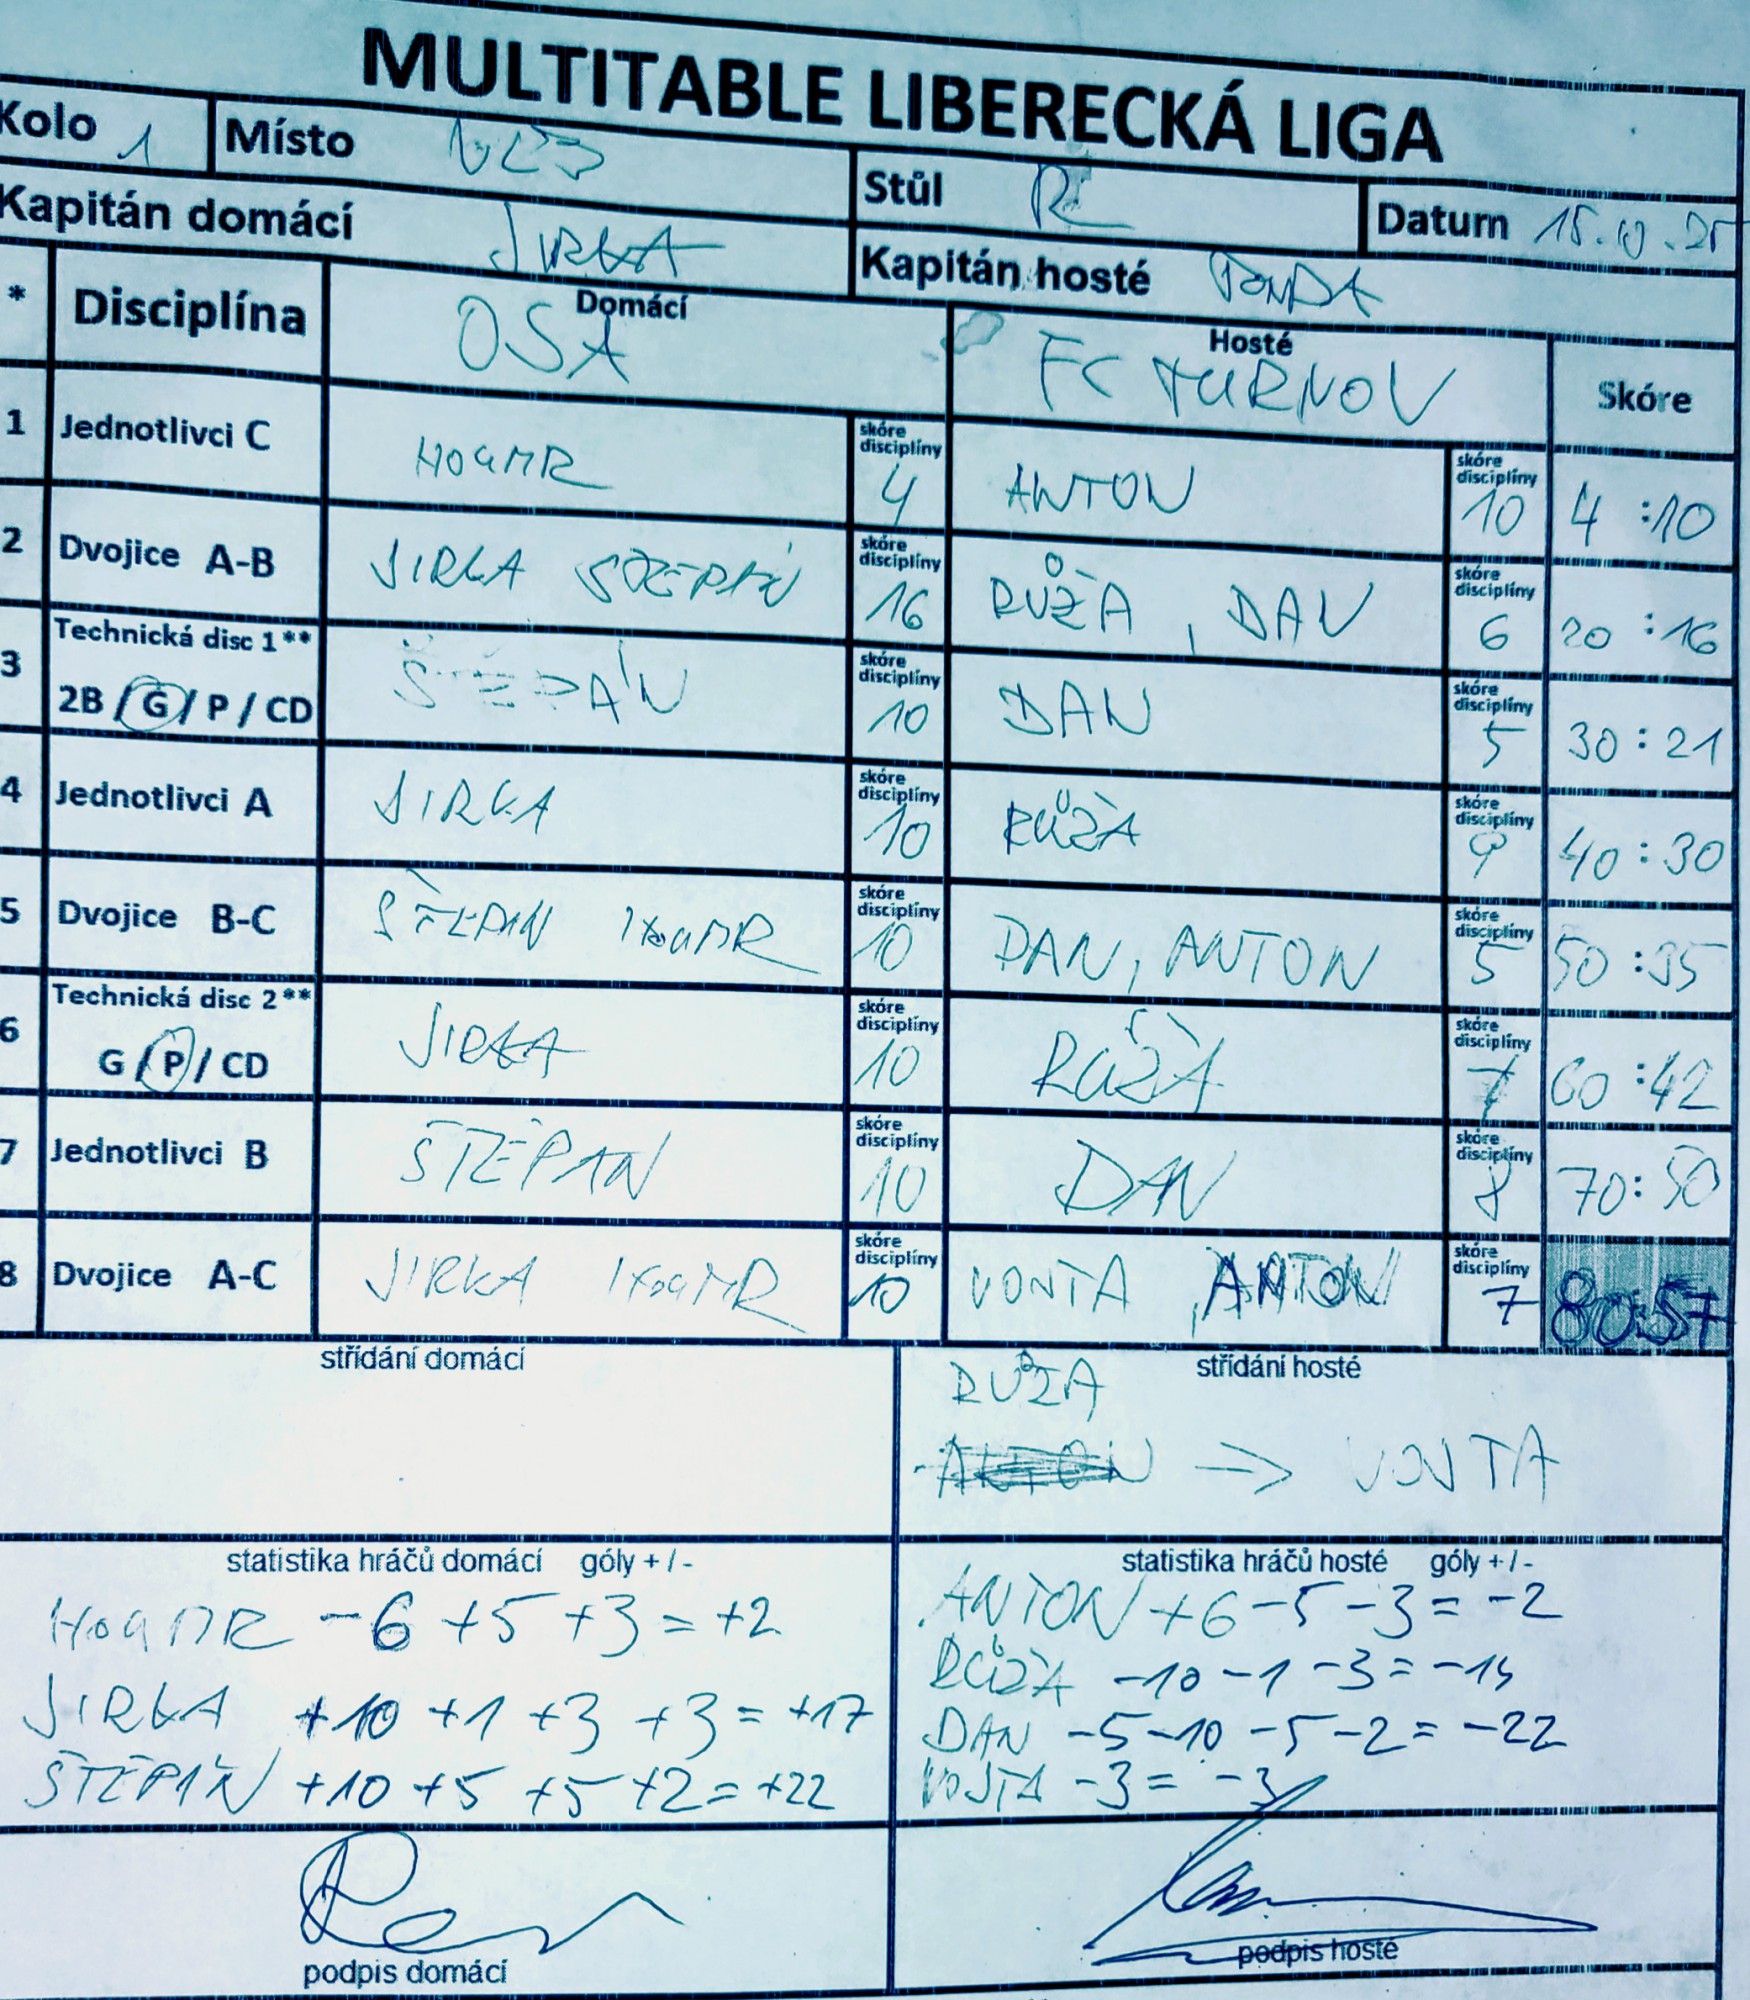 MULTITABLE LIBERECKÁ LIGA
Kolo 1 Místo Stůl R Datum 15.10.25
Kapitán domácí JIRKA Kapitán hosté TONDA
* Disciplína Domácí OSA Hosté FC TURNOV Skóre
1 Jednotlivci C HOGMR skóre disciplíny 4 ANTON skóre disciplíny 10 4:10
2 Dvojice A-B JIRKA ŠTĚPÁN skóre disciplíny 16 RŮŽA, DAN skóre disciplíny 6 20:16
3 Technická disc 1** 2B / G / P / CD ŠTĚPÁN skóre disciplíny 10 DAN skóre disciplíny 5 30:21
4 Jednotlivci A JIRKA skóre disciplíny 10 RŮŽA skóre disciplíny 9 40:30
5 Dvojice B-C ŠTĚPÁN HOGMR skóre disciplíny 10 DAN, ANTON skóre disciplíny 5 50:35
6 Technická disc 2** G / P / CD JIRKA skóre disciplíny 10 RŮŽA skóre disciplíny 7 60:42
7 Jednotlivci B ŠTĚPÁN skóre disciplíny 10 DAN skóre disciplíny 8 70:50
8 Dvojice A-C JIRKA HOGMR skóre disciplíny 10 VOJTA, ANTON skóre disciplíny 7 80:57
střídání domácí střídání hosté
RŮŽA
ANTON => VOJTA
statistika hráčů domácí góly + / - statistika hráčů hosté góly + / -
HOGMR -6 +5 +3 = +2 ANTON +6 -5 -3 = -2
JIRKA +10 +1 +3 +3 = +17 RŮŽA -10 -1 -3 = -14
ŠTĚPÁN +10 +5 +5 +2 = +22 DAN -5 -10 -5 -2 = -22
VOJTA -3 = -3
podpis domácí podpis hosté